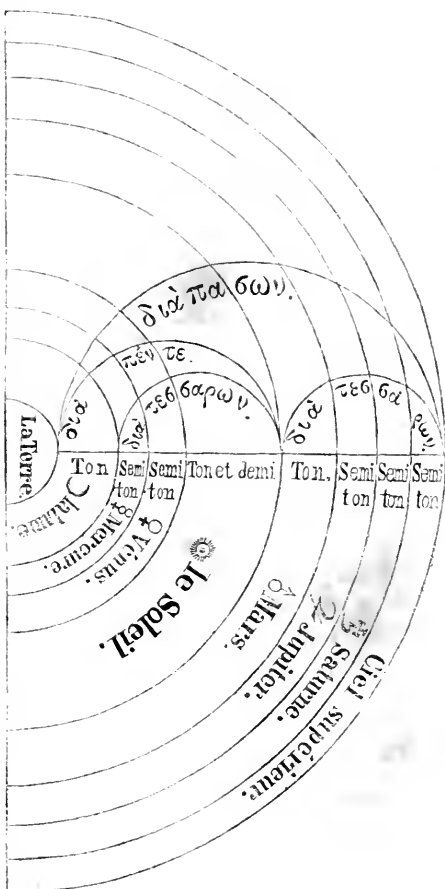 διὰ πασων.
διὰ πέν τε.
διὰ τεσ σαρων.
διὰ τεσ σά ρων.
La Terre.
Ton
Semi ton
Semi ton
Ton et demi
Ton.
Semi ton
Semi ton
Semi ton
☾ la lune.
☿ Mercure.
♀ Vénus.
le Soleil.
♂ Mars.
♃ Jupiter.
♄ Saturne.
Ciel supérieur.